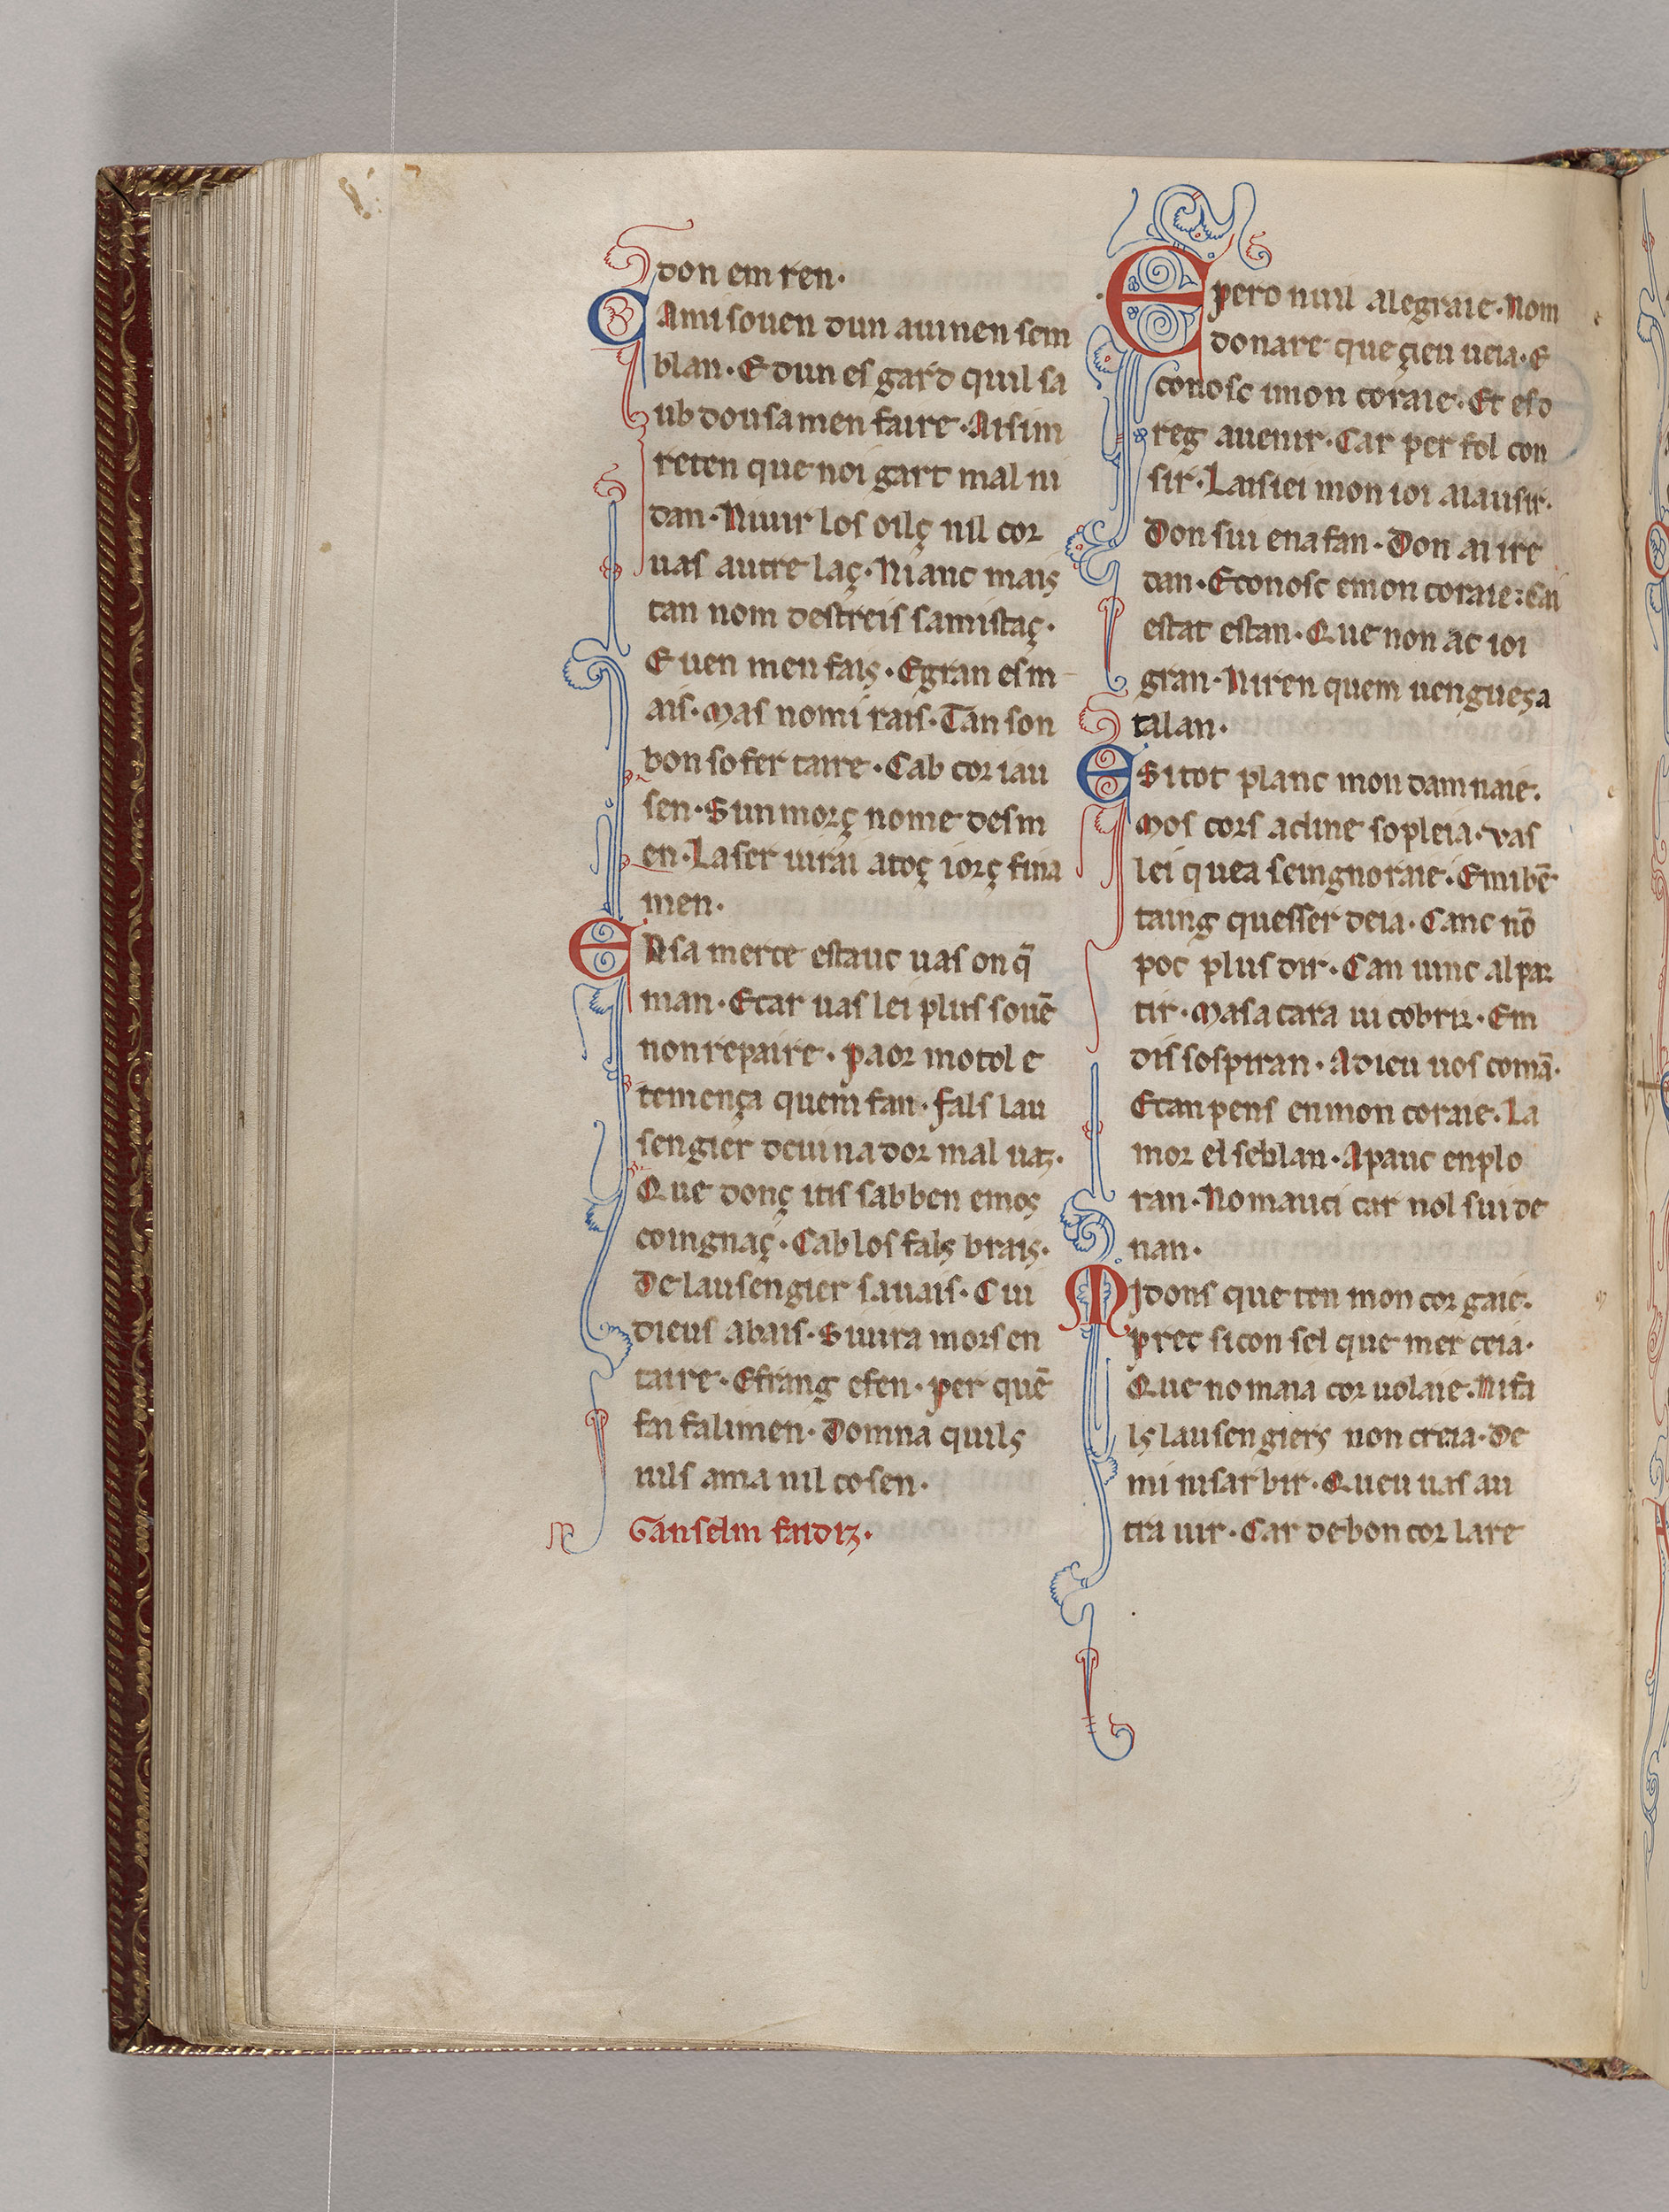 don em ren·
CAmi souen dun auinen sem
blan· E dun es gard quil sa
ub dousamen faire· Aisim
reten que noi gart mal ni
dan· Niuir los oilç nil cor
uas autre laç· Ni anc maiș
tan nom destreis samistaç·
E uen men faiș· E gran esm
ais· Mas nomi rais· Tan son
bon sofertaire· Cab cor iau
sen· Sun morç nome desm
en· La ser uirai atoç iorç fina
men·
EN sa merce estauc uas on q̄
man· Ecar uas lei plus souē
non repaire· paor mo tol e
temença quem fan· fals lau
sengier deuinador mal uaz·
Que donç itis sab ben emoș
coingnaç· Cab los falș braiș·
De lausengier sauais· Cui
dieus abais· Suura mors en
taire· Efrang efen· per quē
fai falimen· Domna quilș
nils ama nil cosen·
Ganselm faidiz·
Epero nuil alegraie· Nom
donare que çieu ueia· E
conosc imon coraie· Et eso
reg auenir· Car per fol con
sir· Laisiei mon ioi aiausir·
Don sui enafan· Don ai ire
dan· E conosc emon coraie: Eai
estat estan· Que non ac ioi
gran· Ni ren quem uengueș a
talan·
E Sitot planc mon damnaie·
Mos cors acline sopleia· vas
lei quea seingnoraie· Emibē
taing quesser deia· Canc nō
poc plus dir· Can uinc al par
tir· Masa cara ui cobrir· Em
dis sospiran· Adieu uos comā·
Ecan pens enmon coraie· La
mor el seblan· Apauc enplo
ran· No mauci car nol sui de
nan·
Midons que ten mon cor gaie·
prec si con sel que mer ceia·
Que no maia cor uolaie· Ni fa
lș lausengierș non creia· De
mi nisarbir· Queu uas au
tra uir· Car de bon cor lare